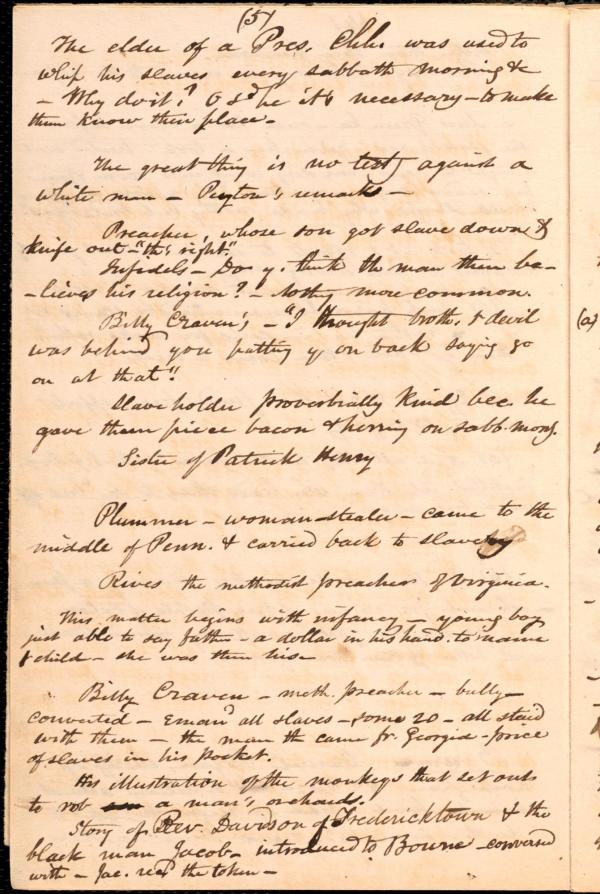 (5)
The elder of a Pres. Chh. was used to
whip his slaves every sabbath morning &c
- Why do it? O sd he it is necessary - to make
them know their place -
The great thing is no testy against a
white man - Peyton's remarks -
Preacher, whose son got slave down &
knife out - "th's right"
Infidels - Do y. think the man then be-
-lieves his religion? - Nothg more common.
Billy Craven's - "I thought broth. t devil
was behind you patting y on back saying go
on at that".
Slave holder proverbially kind bec. he
gave them piece bacon & herring on sabb. mong.
Sister of Patrick Henry
Plummer - woman-stealer - came to the
middle of Penn. & carried back to slavery
Rives the methodist preacher of Virginia.
This matter begins with infancy - young boy
just able to say father - a dollar in his hand. to name
& child - she was then his -
Billy Craven - meth. preacher - bully -
converted - Emand all slaves - some 20 - all staid
with them - the man th came fr. Georgia - price
of slaves in his pocket.
His illustration of the monkeys that set out
to rob a man's orchard.
Story of Rev. Davidson of Fredericktown & the
black man Jacob - introduced to Bourne - conversed
with - Jac. recd the token -
(a)